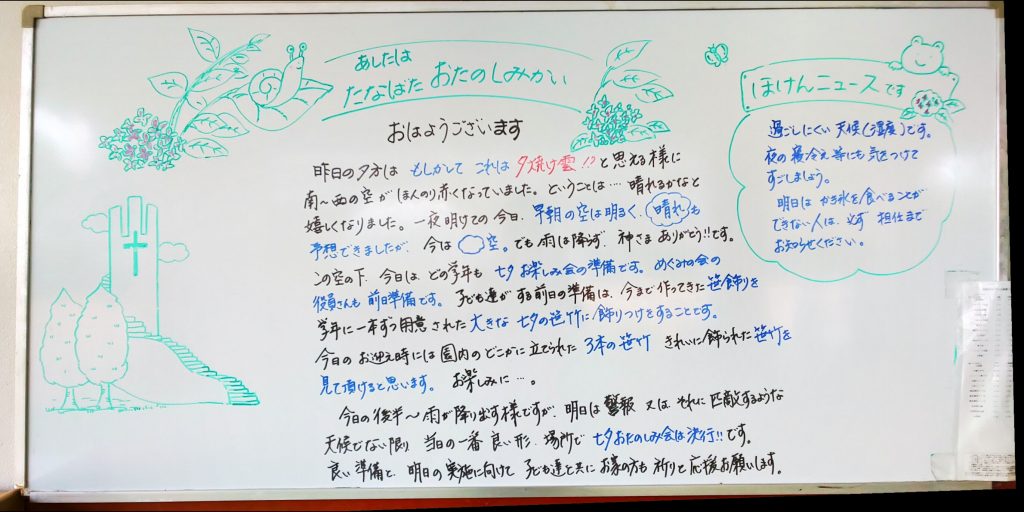 あしたは
たなばた おたのしみかい
おはようございます
昨日の夕方は もしかして これは 夕焼け雲!?と思える様に
南〜西の空が ほんのり赤くなっていました。ということは‥‥晴れるかなと
嬉しくなりました。一夜明けての今日、早朝の空は明るく、晴れも
予想できましたが、今は 空。でも雨は降らず、神さま ありがとう!!です。
この空の下、今日は、どの学年も 七夕お楽しみ会の準備です。めぐみの会の
役員さんも 前日準備です。子ども達がする前日の準備は、今まで作ってきた笹飾りを
学年に一本ずつ用意された大きな 七夕の笹竹に飾りつけをすることです。
今日のお迎え時には園内のどこかに立てられた 3本の笹竹 きれいに飾られた笹竹を
見て頂けると思います。 お楽しみに‥。
今日の後半〜雨が降り出す様ですが、明日は警報 又は それに匹敵するような
天候でない限り 当日の一番良い形、場所で 七夕おたのしみ会は決行!!です。
良い準備と、明日の実施に向けて 子ども達と共に お家の方も 祈りと応援お願いします。
ほけんニュースです
過ごしにくい天候(湿度)です。
夜の寝冷え等にも気をつけて
すごしましょう。
明日は かき氷を食べることが
できない人は、必ず 担任まで
お知らせください。